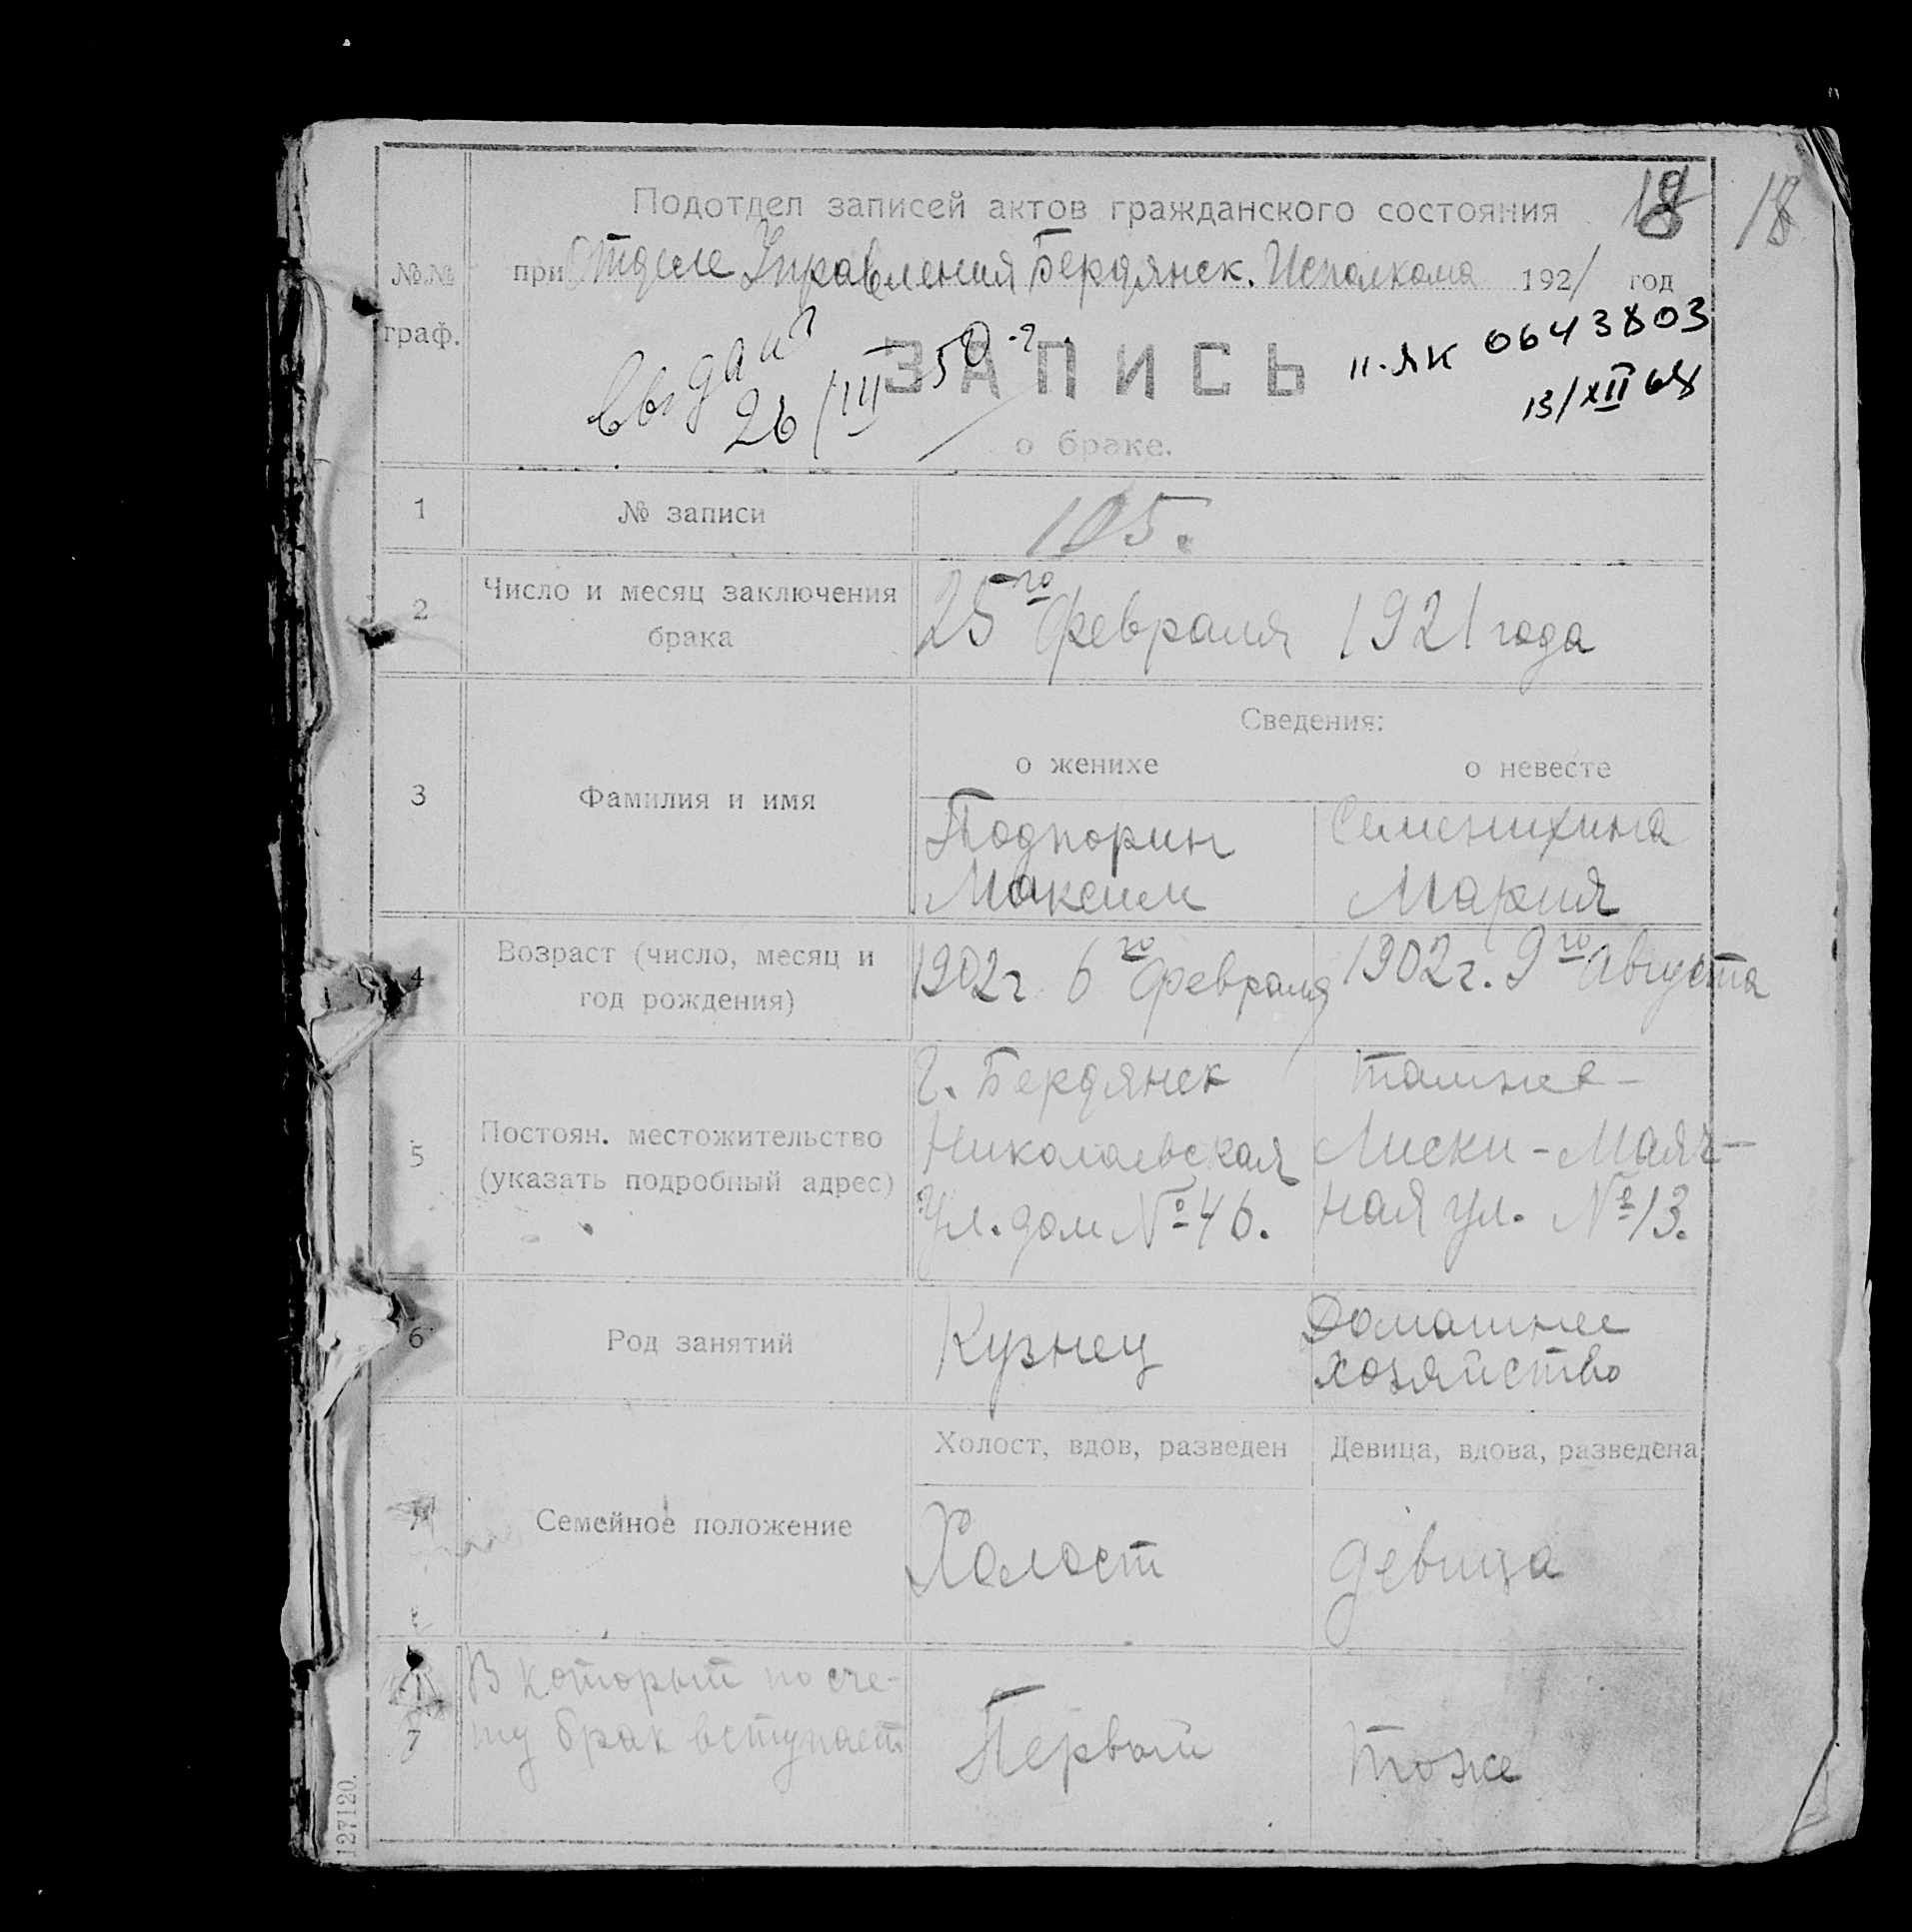 18
Подотдел записей актов гражданского состояния 18
№№ при Отделе Управления Бердянск. Исполкома 1921 год
граф.
выдан
26/III 50 г.
ЗАПИСЬ
II-ЯК 0643803
13/XII 68
о браке.
1 № записи 105.
2 Число и месяц заключения брака 25го февраля 1921 года
Сведения:
о женихе о невесте
3 Фамилия и имя
Подпорин Семенихина
Максим Мария
4 Возраст (число, месяц и год рождения) 1902г 6го февраля 1902г. 9го Августа
5 Постоян. местожительство (указать подробный адрес)
г. Бердянск тамже-
Николаевская Лиски-Маяч-
ул. дом №46. ная ул. №13.
6 Род занятий Кузнец Домашнее
хозяйство
Холост, вдов, разведен Девица, вдова, разведена
7 Семейное положение Холост девица
7 В который по сче-
ту брак вступает Первый тоже
127120.